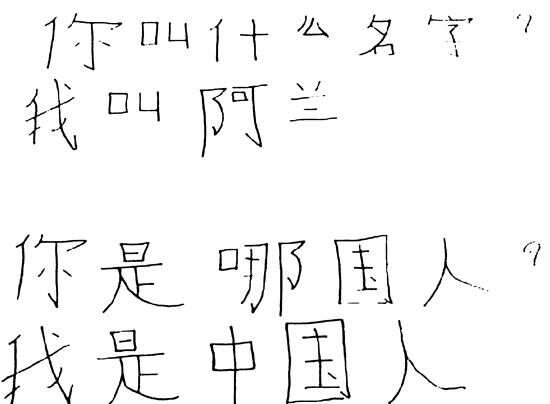 你叫什么名字?
我叫阿兰
你是哪国人?
我是中国人